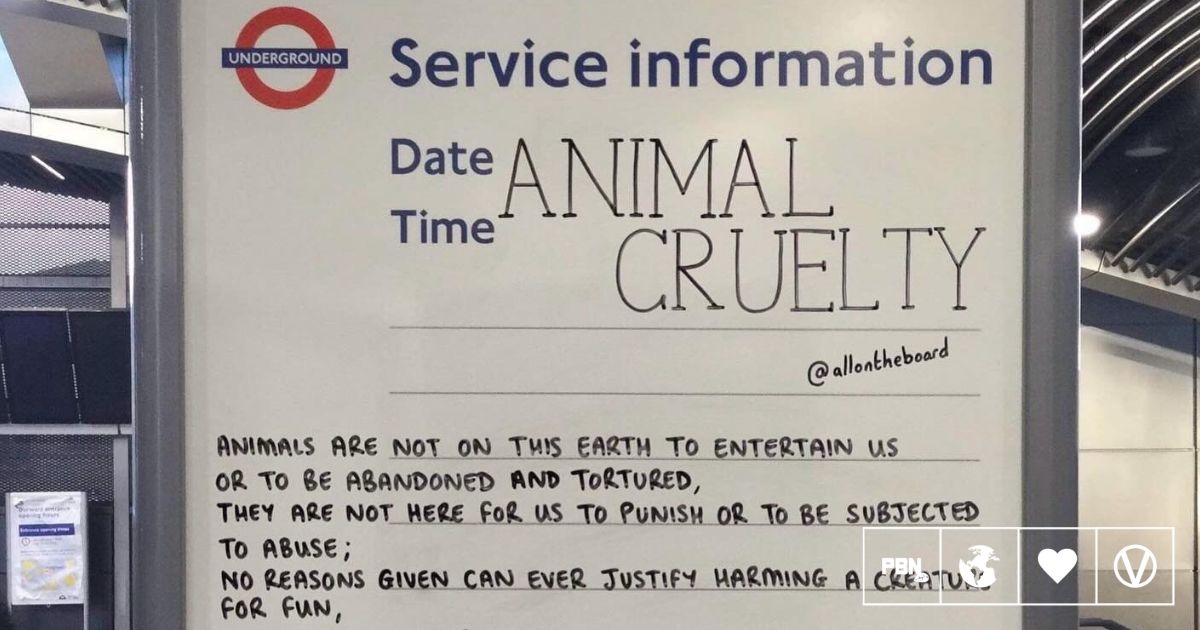 UNDERGROUND
Service information
Date ANIMAL
Time CRUELTY
@allontheboard
ANIMALS ARE NOT ON THIS EARTH TO ENTERTAIN US
OR TO BE ABANDONED AND TORTURED,
THEY ARE NOT HERE FOR US TO PUNISH OR TO BE SUBJECTED
TO ABUSE;
NO REASONS GIVEN CAN EVER JUSTIFY HARMING A CREATURE
FOR FUN,
PBN